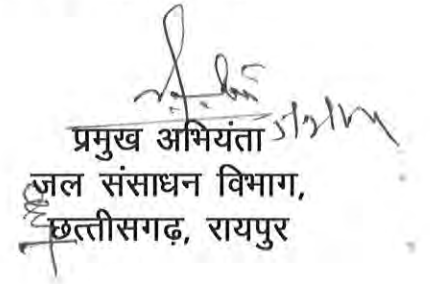 प्रमुख अभियंता
जल संसाधन विभाग,
छत्तीसगढ़, रायपुर